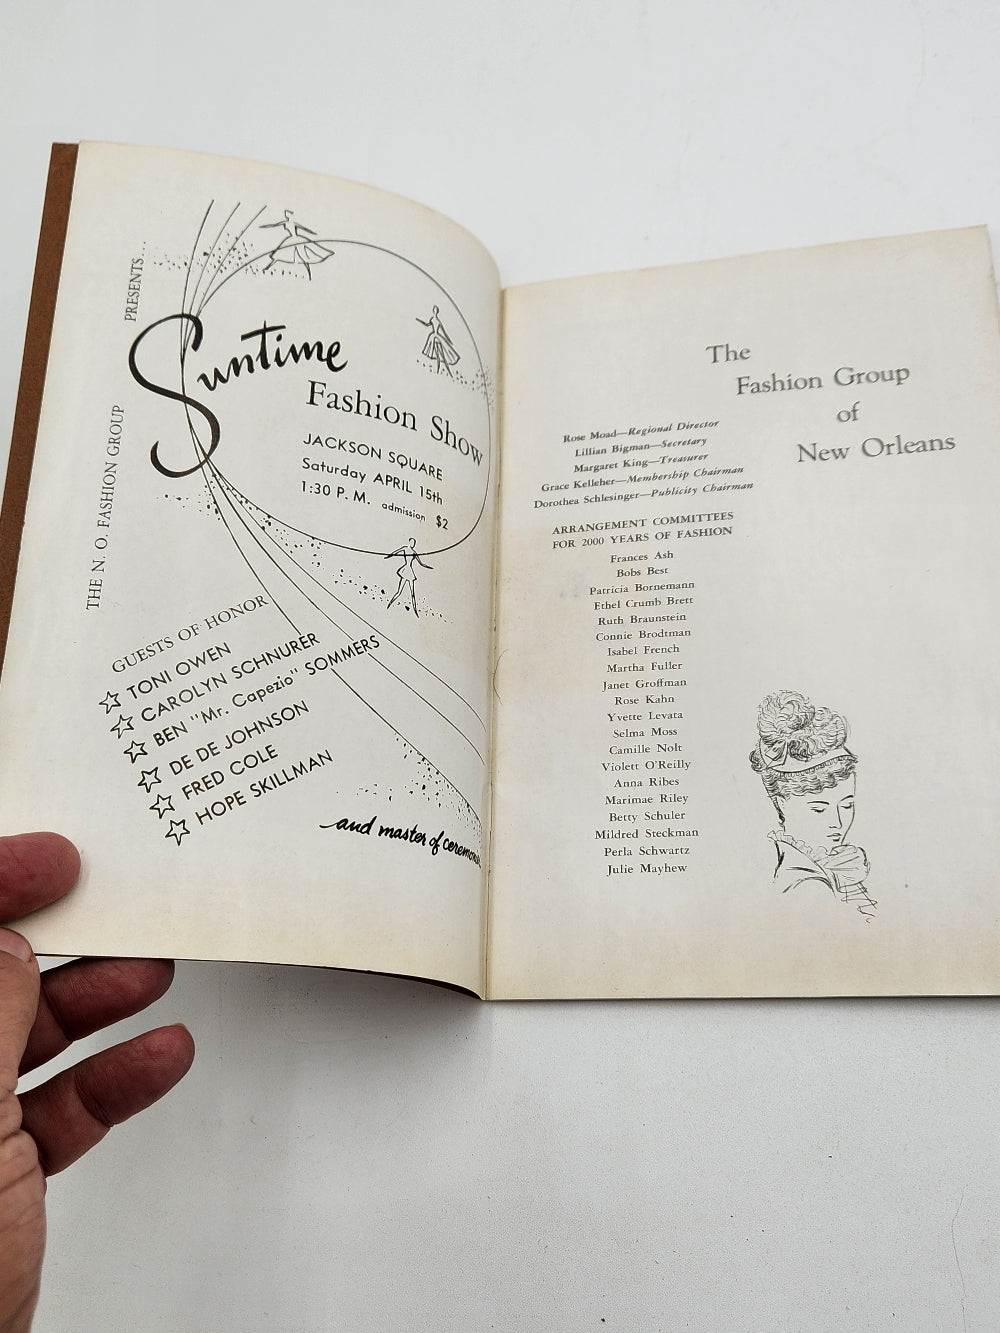 THE N. O. FASHION GROUP PRESENTS....
Suntime
Fashion Show
JACKSON SQUARE
Saturday APRIL 15th
1:30 P. M. admission $2
GUESTS OF HONOR
TONI OWEN
CAROLYN SCHNURER
BEN "Mr. Capezio" SOMMERS
DE DE JOHNSON
FRED COLE
HOPE SKILLMAN
and master of
The
Fashion Group
of
New Orleans
Rose Moad—Regional Director
Lillian Bigman—Secretary
Margaret King—Treasurer
Grace Kelleher—Membership Chairman
Dorothea Schlesinger—Publicity Chairman
ARRANGEMENT COMMITTEES
FOR 2000 YEARS OF FASHION
Frances Ash
Bobs Best
Patricia Bornemann
Ethel Crumb Brett
Ruth Braunstein
Connie Brodtman
Isabel French
Martha Fuller
Janet Groffman
Rose Kahn
Yvette Levata
Selma Moss
Camille Nolt
Violett O'Reilly
Anna Ribes
Marimae Riley
Betty Schuler
Mildred Steckman
Perla Schwartz
Julie Mayhew